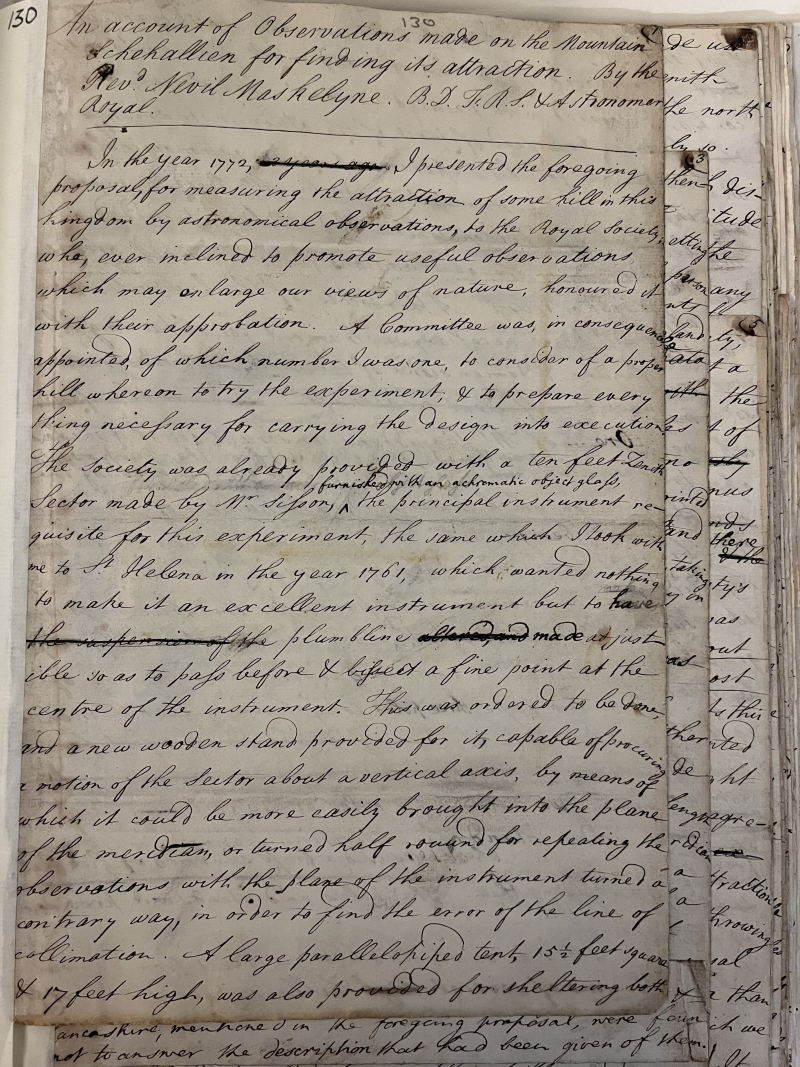 130
130
An account of Observations made on the Mountain
Schehallien for finding its attraction. By the
Revd. Nevil Maskelyne. B.D. F.R.S. & Astronomer
Royal.
In the year 1772, 2 years ago I presented the foregoing
proposal, for measuring the attraction of some hill in this
kingdom by astronomical observations, to the Royal Society,
who, ever inclined to promote useful observations
which may enlarge our views of nature, honoured it
with their approbation. A Committee was, in consequence
appointed, of which number I was one, to consider of a proper
hill whereon to try the experiment, & to prepare every
thing necessary for carrying the design into execution.
The Society was already provided with a ten feet Zenith
furnished with an achromatic object glass,
Sector made by Mr Sisson, ^ the principal instrument re-
quisite for this experiment, the same which I took with
me to St Helena in the year 1761, which wanted nothing
to make it an excellent instrument but to have
the suspension of the plumbline altered, and made adjust
ible so as to pass before & bissect a fine point at the
centre of the instrument. This was ordered to be done,
and a new wooden stand provided for it, capable of procuring
a motion of the Sector about a vertical axis, by means of
which it could be more easily brought into the plane
of the meridian, or turned half round for repeating the
observations with the plane of the instrument turned a
contrary way, in order to find the error of the line of
collimation. A large parallelopiped tent, 15½ feet square
& 17 feet high, was also provided for sheltering both
ancashire, mentioned in the foregoing proposal, were foun
not to answer the description that had been given of them.
de use
enith
the north
by so.
3
then dis-
itude
etting the
person any
5
land ty,
t a
the
as t of
no
nus
and there
taking ty's
as
out
as
ost
ts this
ther
de ht
length agre-
a traction
a throwing
sal
& than
ich we
It